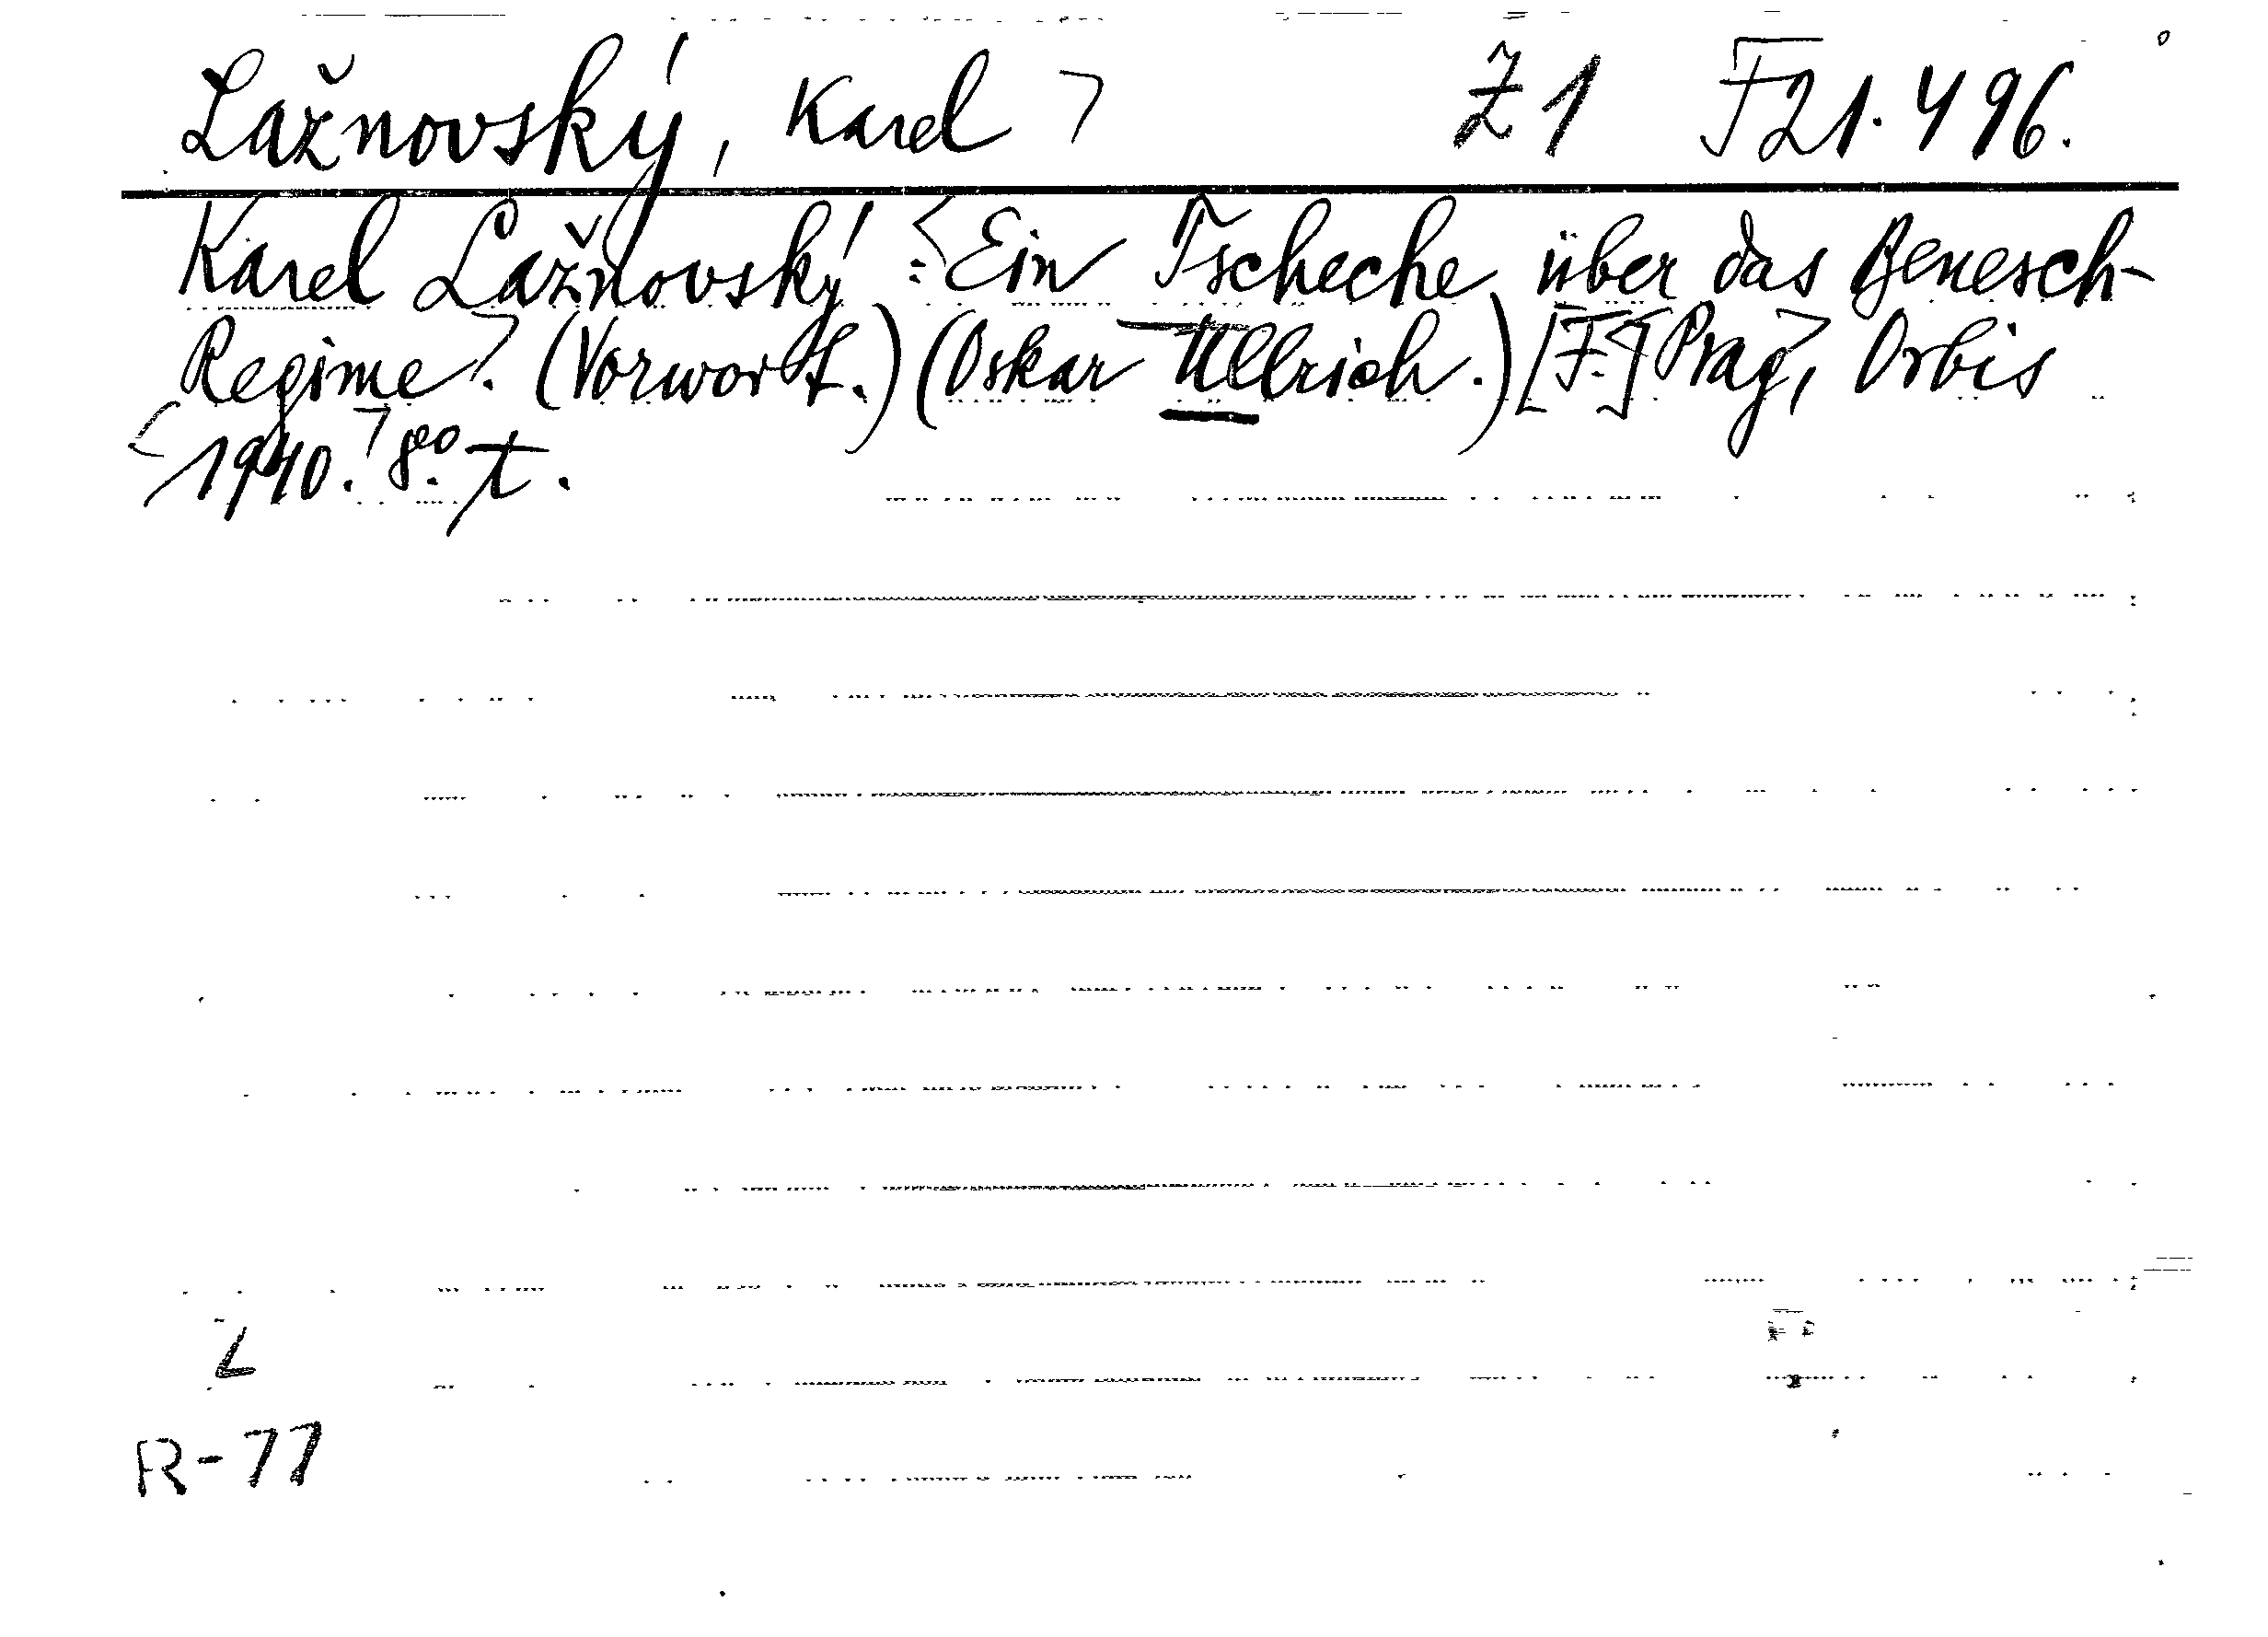 Lažnovský, Karel Z1 F21.496.
Karel Lažnovský: Ein Tscheche über das Benesch-
Regime. (Vorwort.) (Oskar Ullrich.) [F.] Prag, Orbis
1940. 8o. t.
Z
R-77